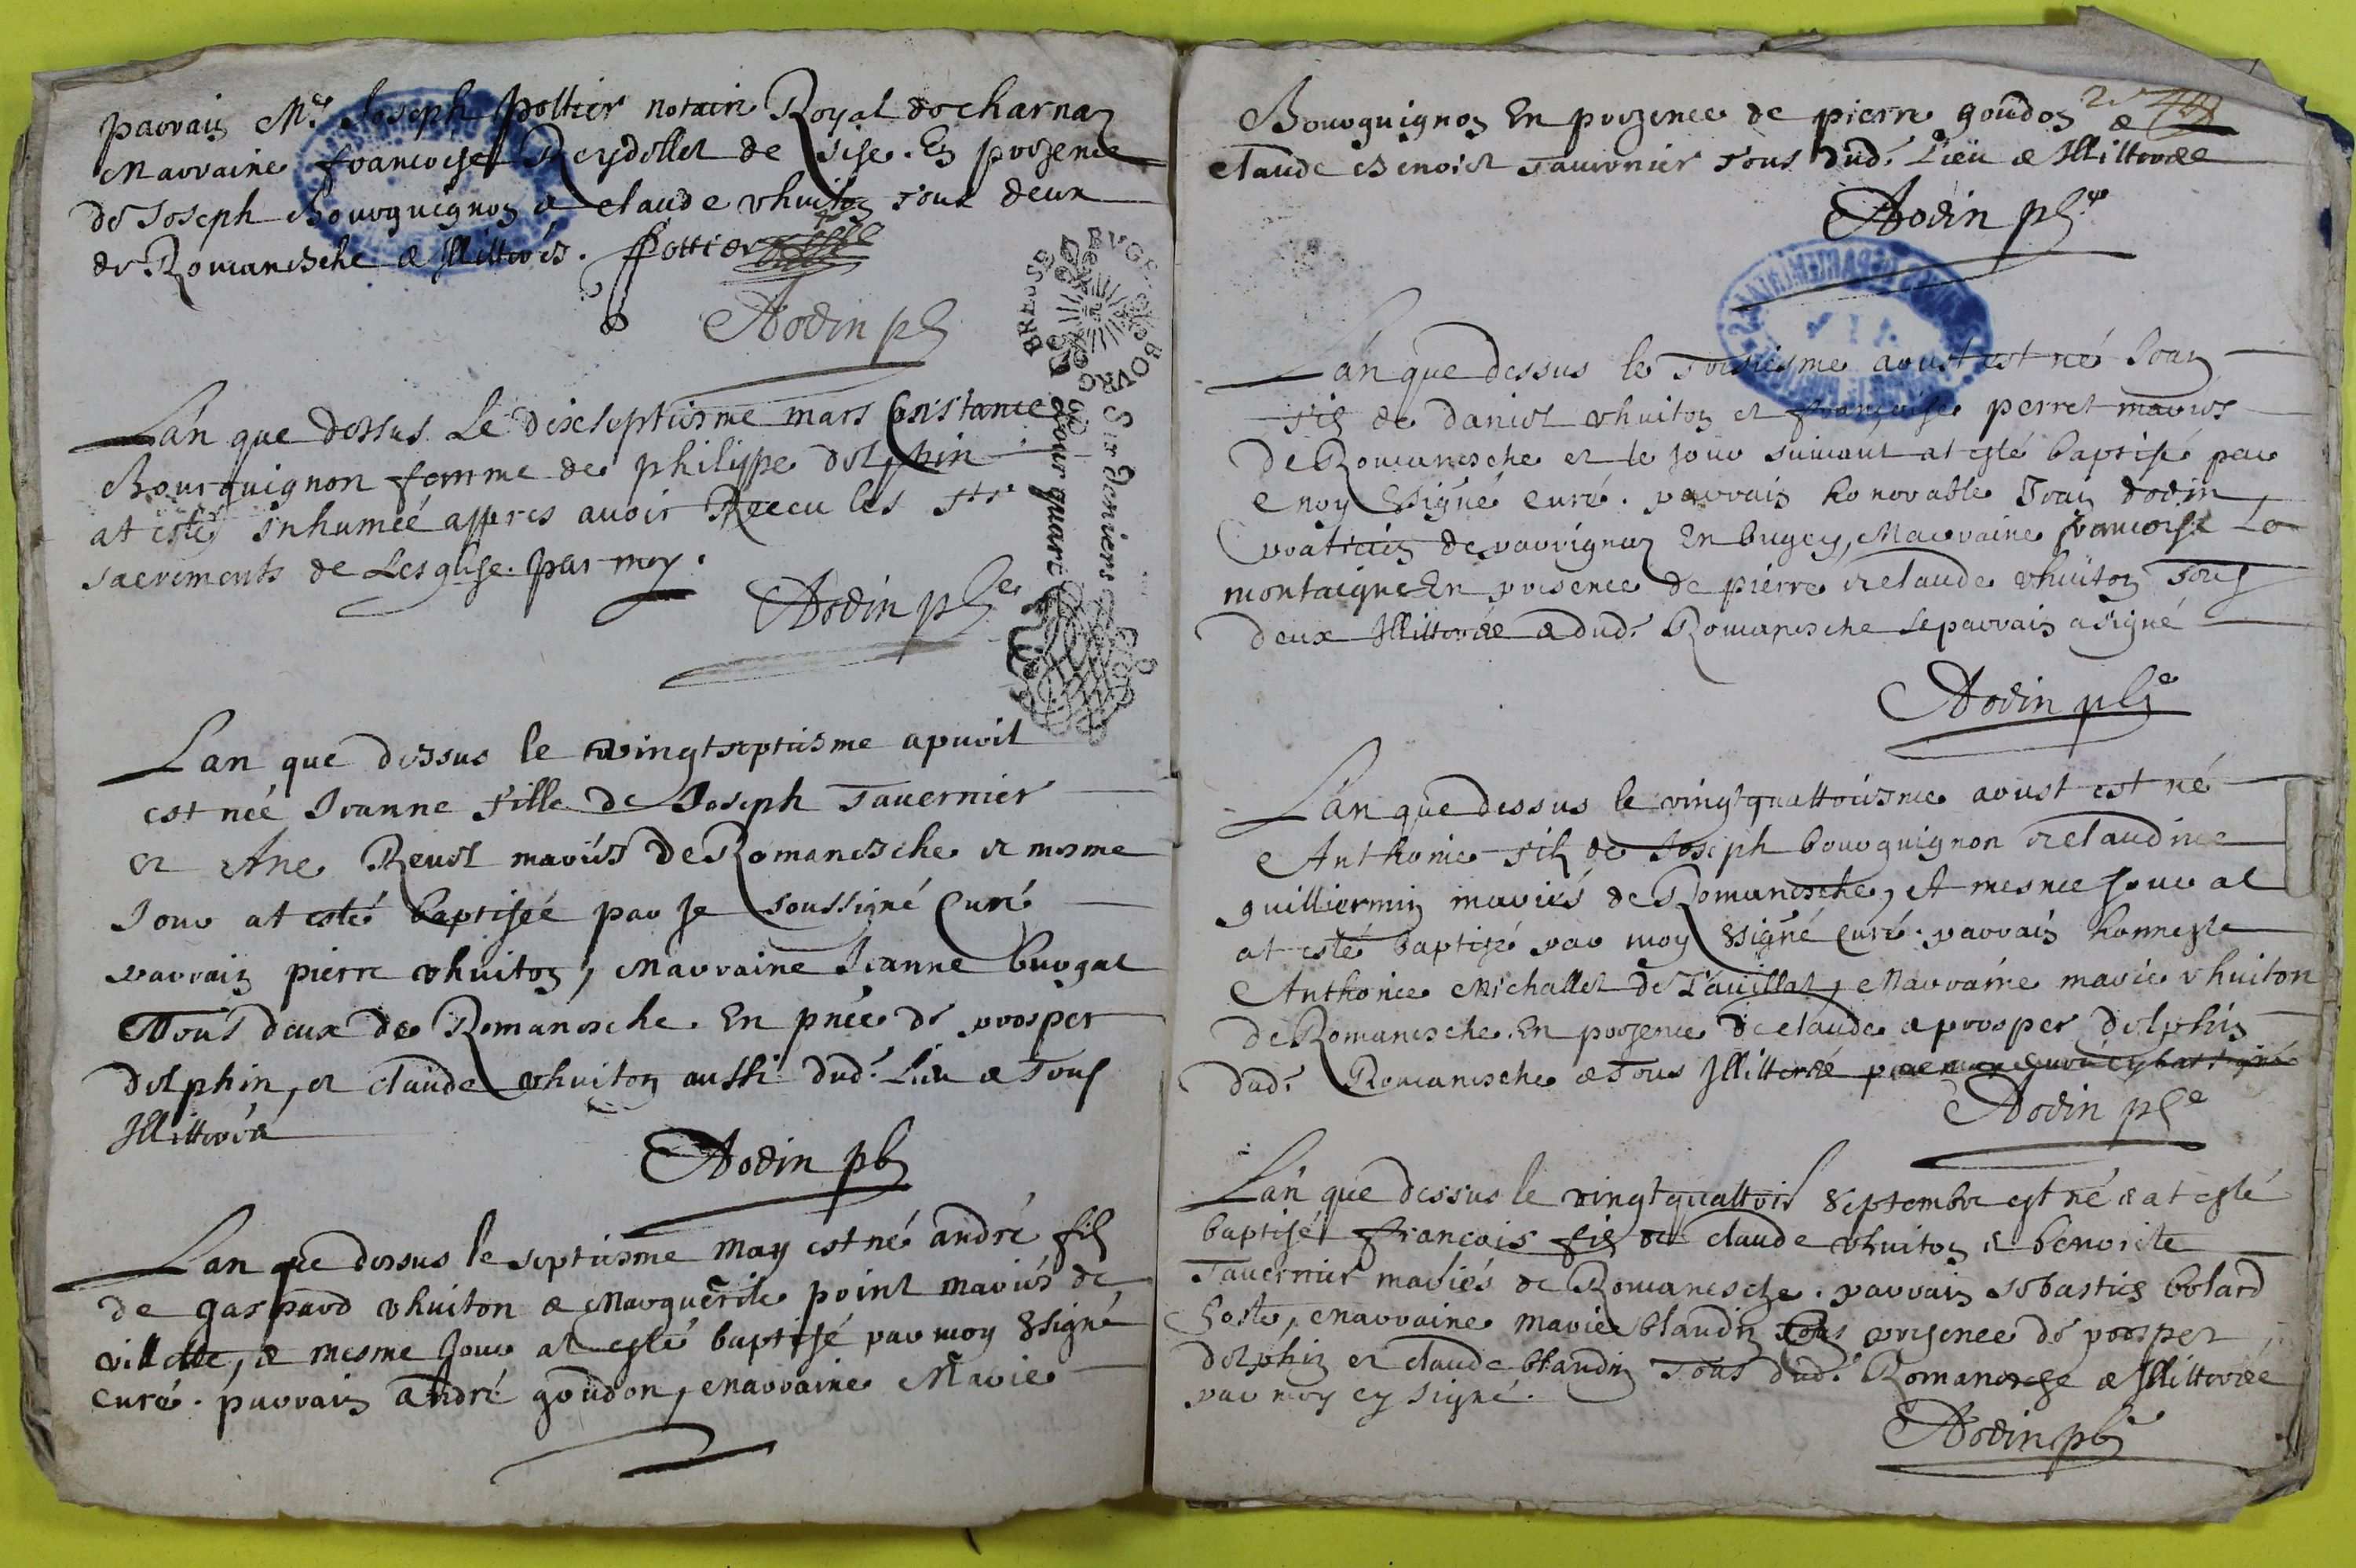 parrain Mr. Joseph Pottier notaire Royal de charnaz
Marraine francoise Reydellet de Sise. En presence
de Joseph Bourguignon & claude vhuiton tous deux
de Romanesche & Illitterés. Pottier
Dodin pb
Lan que dessus Le dixseptiesme mars Constance
Bourguignon femme de philippe delphin
at esté inhumeé appres auoir Receu les Sts
sacrements de Lesglise. par moy.
Dodin pbre
Lan que dessus le vingtseptiesme apuril
est neé Jeanne fille de Joseph Tauernier
et Ane Reuel mariés de Romanesche et mesme
Jour at esté baptiseé par Je soussigné Curé
parrain pierre vhuiton, Marraine Jeanne burgat
Tous deux de Romanesche. En pnce de prosper
delphin, et claude vhuiton aussi dud. Lieu & Tous
Illitteré
Dodin pb
Lan que dessus le septiesme may est né andré fils
de gaspard vhuiton & Marguerite point mariés de
villette, & mesme Jour at esté baptisé par moy ssigné
curé. parrain andré goudon, Marraine Marie
BRESSE BVGE BOVRG
Six deniers
pour quart
Bourguignon En presence de pierre goudon &
claude Benoist Tauernier tous dud. Lieu & Illitteré
Dodin pbre
Lan que dessus le Troisiesme aoust est né Jean
fils de daniel vhuiton et françoise perret mariés
De Romanesche et le Jour suiuant at esté baptisé par
moy ssigné curé. parrain honorable Jean dodin
praticien de parrignaz En bugey, Marraine francoise La
montaigne En presence de pierre et claude vhuiton Tous
deux Illitteré & dud. Romanesche le parrain a signé
Dodin pbre
Lan que dessus le vingtquattriesme aoust est né
Anthonie fils de Joseph bourguignon et claudine
guilliermin mariés de Romanesche, et mesme Jour at
at esté baptisé par moy ssigné curé. parrain honneste
Anthonie Michallet de Tauillat, Marraine marie vhuiton
de Romanesche. En presence de claude & prosper delphin
dud. Romanesche & Tous Illitteré
Dodin pbre
Lan que dessus le vingtquattre septembre est né & at esté
baptisé francois fils de claude vhuiton & benoite
Tauernier mariés de Romanesche. parrain sebastien bolard
hoste, marraine marie blandin presence de prosper
delphin et claude blandin Tous dud. Romanesche & Illitteré
par moy cy signé.
Dodin pbre